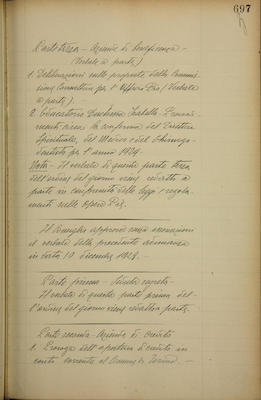 697
Parte terza - Aziende di beneficenza -
(Verbale a parte)
1. Deliberazioni sulle proposte della Commis-
sione Consultiva per l'Ufficio Pio (Verbale
a parte).
2. Educatorio Duchessa Isabella. Provvedi-
menti circa la conferma del Direttore
Spirituale, del Medico e del Chirurgo-
dentista per l'anno 1929.
Nota - Il verbale di questa parte terza
dell'ordine del giorno viene redatto a
parte in conformità delle leggi e regola-
menti sulle Opere Pie.
Il Consiglio approva senza osservazioni
il verbale della precedente adunanza
in data 10 dicembre 1928.
Parte prima - Seduta segreta -
Il verbale di questa parte prima del-
l'ordine del giorno viene redatto a parte.
Parte seconda - Azienda di credito
1. Proroga dell'apertura di credito in
conto corrente al Comune di Torino. -